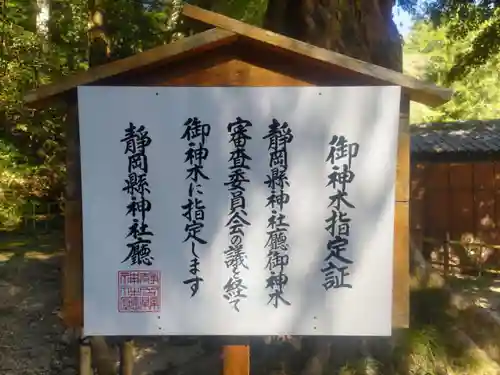 御神水指定証
静岡縣神社廳御神水
審査委員会の議を経て
御神水に指定します
静岡縣神社廳